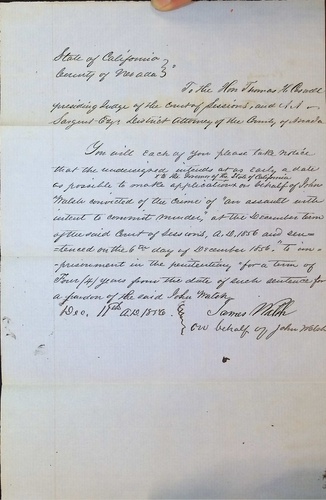 State of California
County of Nevada
To the Hon Thomas H. Caswell
presiding Judge of the court of Sessions, and A. A.
Sargent Esqr District Attorney of the County of Nevada
You will each of you please take notice
that the undersigned intends at as early a date
to the Governor of the State of California
as possible to make application on behalf of John
Walsh convicted of the crime of "an assault with
intent to commit murder," at the December term
of the said Court of Sessions, A.D. 1856 and sen-
tenced on the 6th day of December 1856. To im-
prisonment in the penitentiary for a term of
Four (4) years from the date of such sentence for
a pardon of the said John Walsh
Dec. 11th A.D. 1856.
James Walsh
on behalf of John Walsh